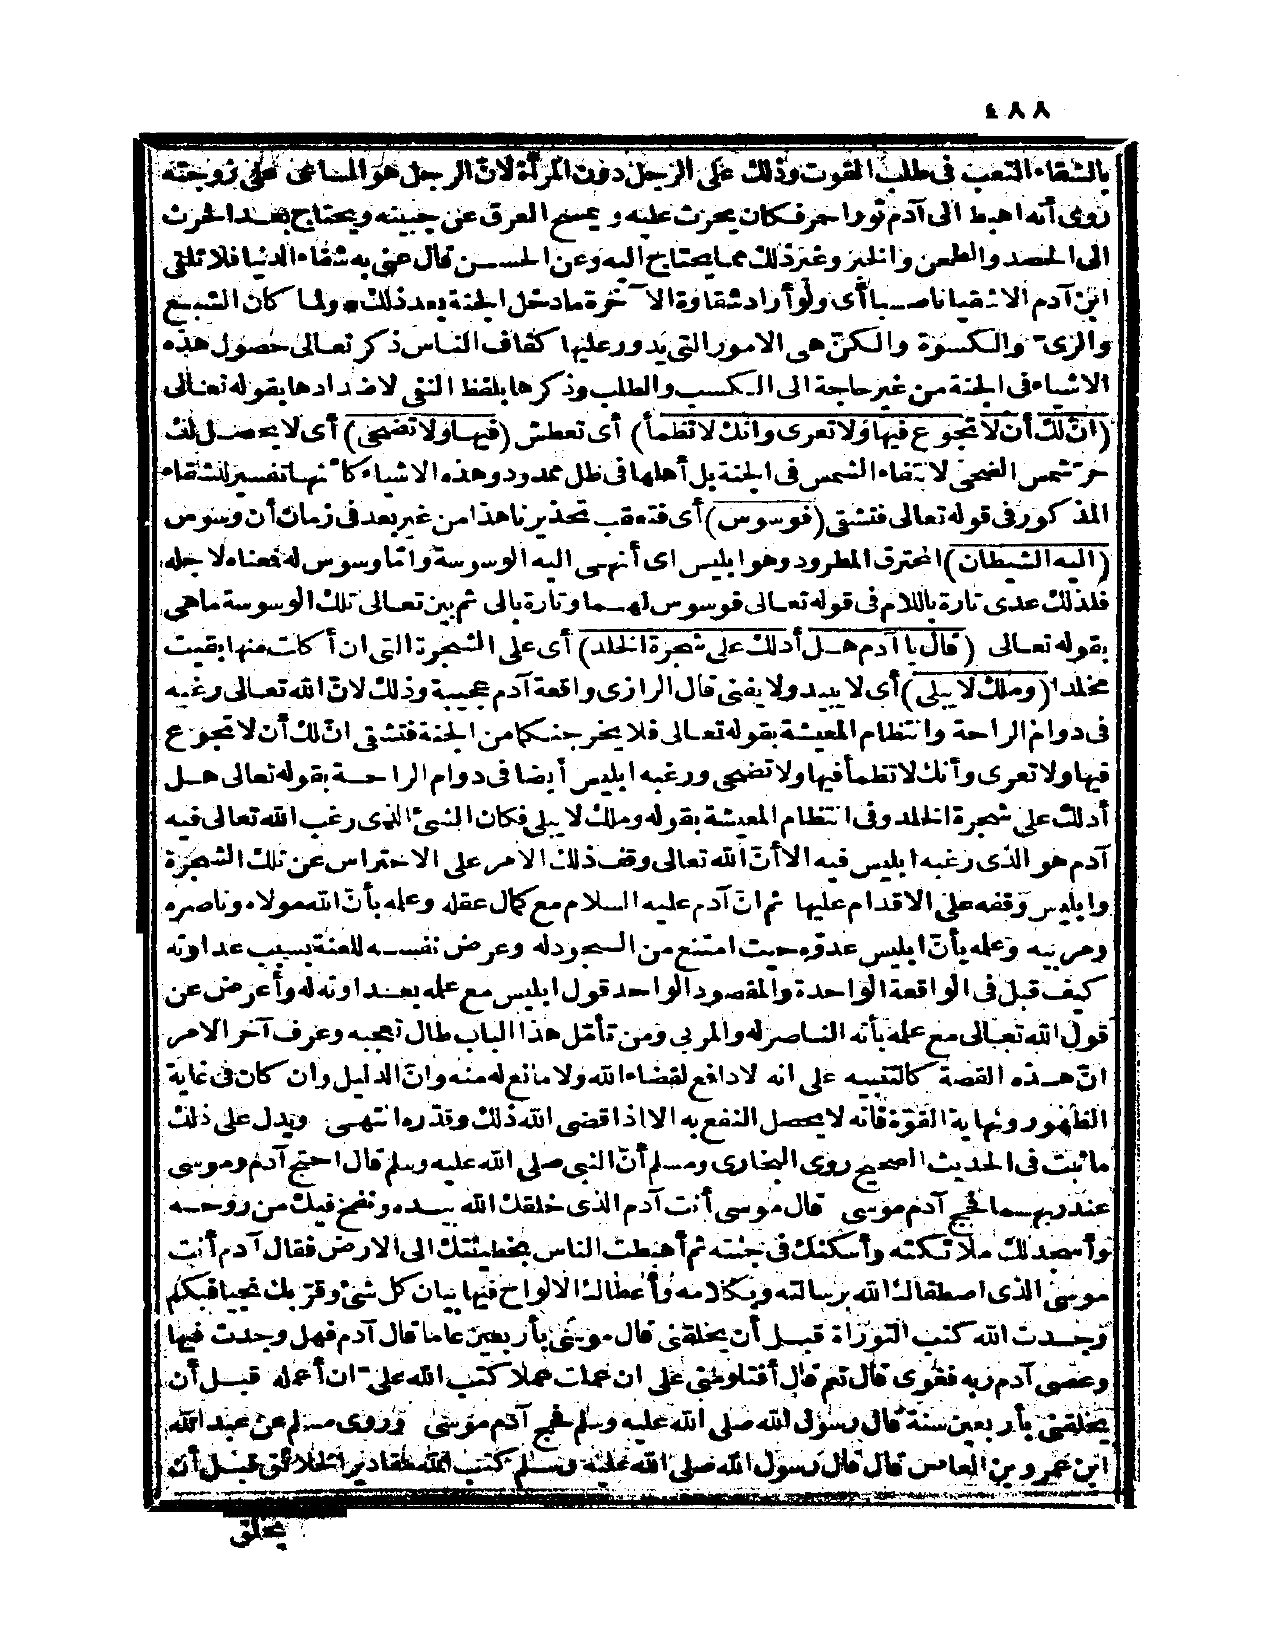 ٤٨٨
بالشقاء التعب فى طلب القوت وذلك على الرجل دون المرأة لانّ الرجل هو الساعى على زوجته
روى أنه اهبط الى آدم ثورا حمر فكان يحرث عليه و يمسح العرق عن جبينه ويحتاج بعد الحرث
الى الحصد والطحن والخبز وغير ذلك مما يحتاج اليه وعن الحسن قال عنى به شقاء الدنيا فلا تلقى
ابن آدم الا شقيا ناصبا أى ولو أراد شقاوة الآخرة ما دخل الجنة بعد ذلك • ولما كان الشبع
والرىّ والكسوة والكنّ هى الامور التى يدور عليها كفاف الناس ذكر تعالى حصول هذه
الاشياء فى الجنة من غير حاجة الى الكسب والطلب وذكرها بلفظ النفى لاضدادها بقوله تعالى
(انّ لك أن لا تجوع فيها ولا تعرى وانك لا تظمأ) أى تعطش (فيها ولا تضحى) أى لا يحصل لك
حرّ شمس الضحى لانتفاء الشمس فى الجنة بل أهلها فى ظل ممدود وهذه الاشياء كأنها تفسير للشقاء
المذكور فى قوله تعالى فتشقى (فوسوس) أى فتعقب تحذيرنا هذا من غير بعد فى زمان أن وسوس
(اليه الشيطان) المحترق المطرود وهو ابليس اى أنهى اليه الوسوسة وامّا وسوس له فمعناه لاجله
فلذلك عدى تارة باللام فى قوله تعالى فوسوس لهما وتارة بالى ثم بين تعالى تلك الوسوسة ما هى
بقوله تعالى (قال يا آدم هل أدلك على شجرة الخلد) أى على الشجرة التى ان أكلت منها بقيت
مخلدا (وملك لا يبلى) أى لا يبيد ولا يفنى قال الرازى واقعة آدم عجيبة وذلك لانّ الله تعالى رغبه
فى دوام الراحة وانتظام المعيشة بقوله تعالى فلا يخرجنكما من الجنة فتشقى انّ لك أن لا تجوع
فيها ولا تعرى وأنك لا تظمأ فيها ولا تضحى ورغبه ابليس أيضا فى دوام الراحة بقوله تعالى هل
أدلك على شجرة الخلد وفى انتظام المعيشة بقوله وملك لا يبلى فكان الشئ الذى رغب الله تعالى فيه
آدم هو الذى رغبه ابليس فيه الا أنّ الله تعالى وقف ذلك الامر على الاحتراس عن تلك الشجرة
وابليس وقفه على الاقدام عليها ثم انّ آدم عليه السلام مع كمال عقله وعلمه بأنّ الله مولاه وناصره
ومربيه وعلمه بأنّ ابليس عدوّه حيث امتنع من السجود له وعرض نفسه للعنة بسبب عداوته
كيف قبل فى الواقعة الواحدة والمقصود الواحد قول ابليس مع علمه بعداوته له وأعرض عن
قول الله تعالى مع علمه بأنه الناصر له والمربى ومن تأمّل هذا الباب طال تعجبه وعرف آخر الامر
انّ هذه القصة كالتنبيه على انه لا دافع لقضاء الله ولا مانع له منه وانّ الدليل وان كان فى غاية
الظهور ونهاية القوّة فانه لا يحصل النفع به الا اذا قضى الله ذلك وقدّره انتهى ويدل على ذلك
ما ثبت فى الحديث الصحيح روى البخارى ومسلم أنّ النبى صلى الله عليه وسلم قال احتج آدم وموسى
عند ربهما فحج آدم موسى قال موسى أنت آدم الذى خلقك الله بيده ونفخ فيك من روحه
وأسجد لك ملائكته وأسكنك فى جنته ثم أهبطت الناس بخطيئتك الى الارض فقال آدم أنت
موسى الذى اصطفاك الله برسالته وبكلامه وأعطاك الالواح فيها بيان كل شئ وقرّبك نجيا فبكم
وجدت الله كتب التوراة قبل أن يخلقنى قال موسى بأربعين عاما قال آدم فهل وجدت فيها
وعصى آدم ربه فغوى قال نعم قال أفتلومنى على ان عملت عملا كتب الله علىّ ان أعمله قبل أن
يخلقنى بأربعين سنة قال رسول الله صلى الله عليه وسلم فحج آدم موسى وروى مسلم عن عبد الله
ابن عمرو بن العاص قال قال رسول الله صلى الله عليه وسلم كتب الله مقادير الخلائق قبل أن
يخلق